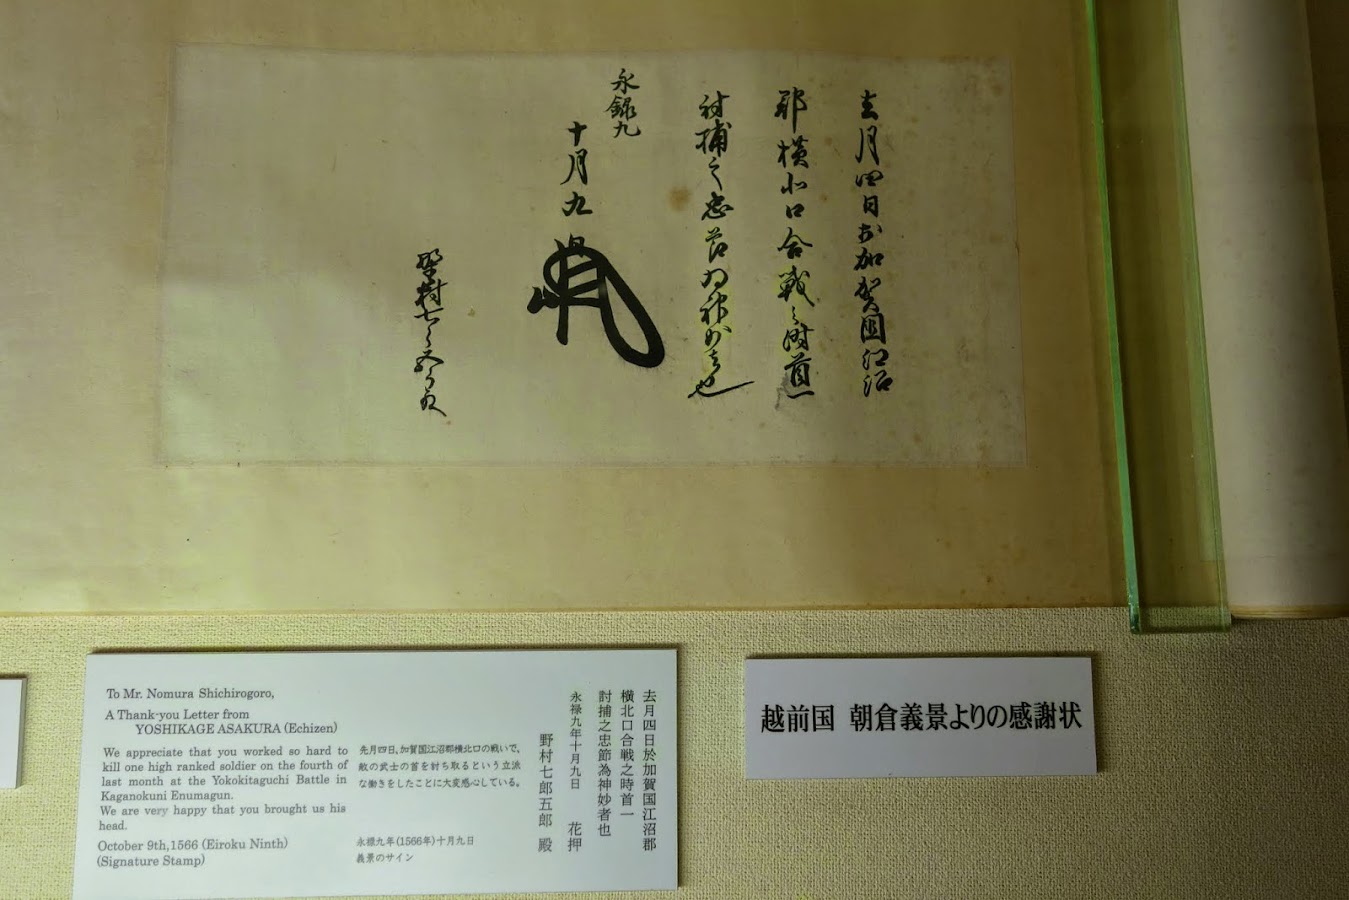 去月四日於加賀国江沼
郡横北口合戦之時首一
討捕之忠節為神妙者也
永録九
十月九
野村七郎五郎殿
To Mr. Nomura Shichirogoro,
A Thank-you Letter from
YOSHIKAGE ASAKURA (Echizen)
We appreciate that you worked so hard to
kill one high ranked soldier on the fourth of
last month at the Yokokitaguchi Battle in
Kaganokuni Enumagun.
We are very happy that you brought us his
head.
October 9th,1566 (Eiroku Ninth)
(Signature Stamp)
先月四日、加賀国江沼郡横北口の戦いで、
敵の武士の首を討ち取るという立派
な働きをしたことに大変感心している。
永禄九年(1566年)十月九日
義景のサイン
去月四日於加賀国江沼郡
横北口合戦之時首一
討捕之忠節為神妙者也
永禄九年十月九日 花押
野村七郎五郎 殿
越前国 朝倉義景よりの感謝状